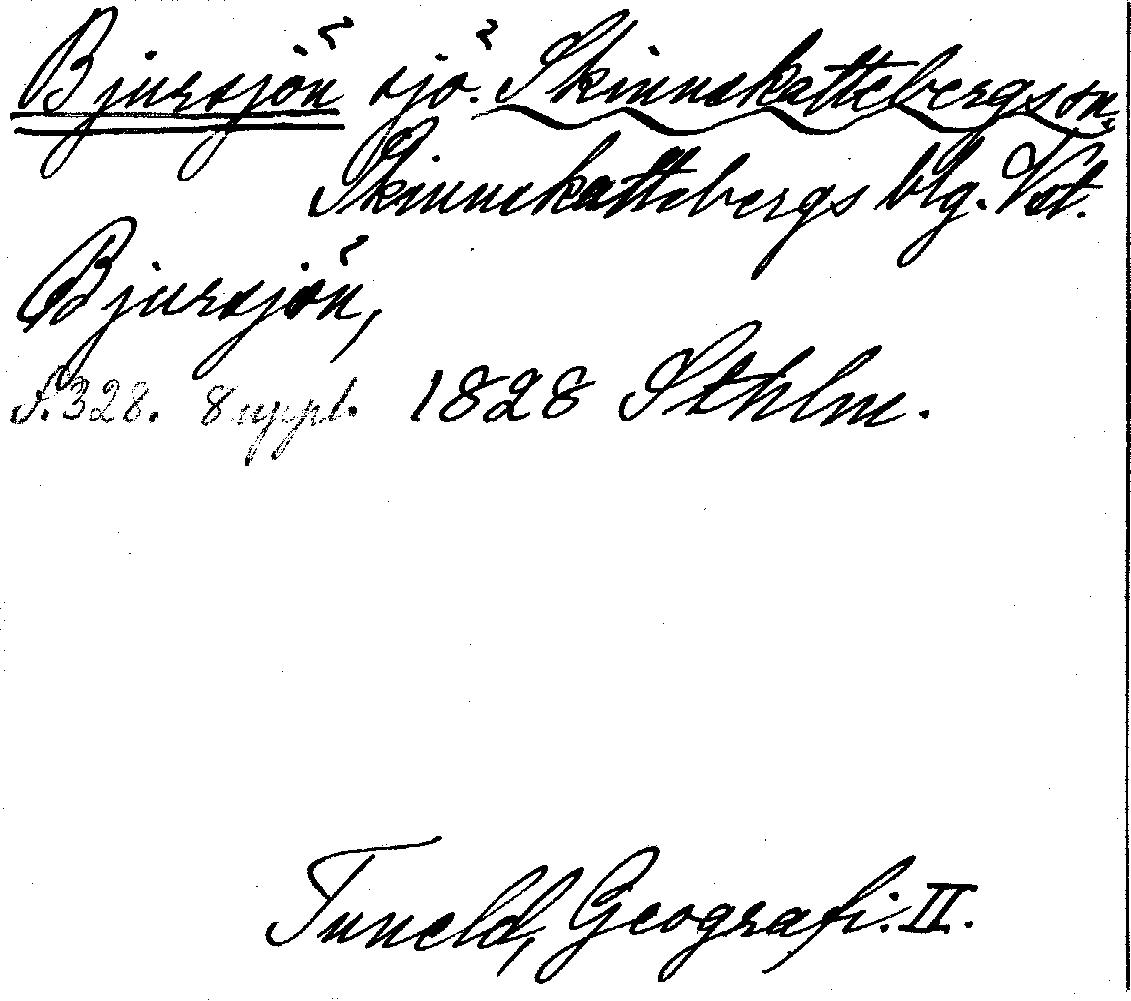 Bjursjön sjö. Skinnskattebergs sn.
Skinnskattebergs blg. Vst.
Bjursjön,
S. 328. 8 uppl. 1828 Sthlm.
Tuneld, Geografi. II.